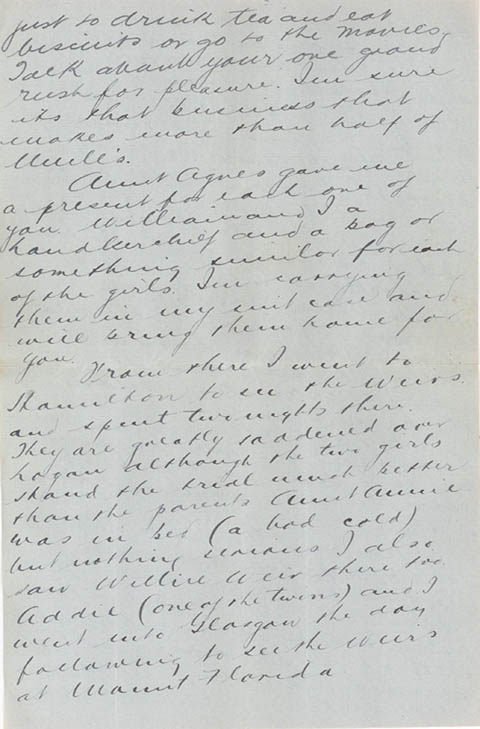 just to drink tea and eat
biscuits or go to the movies.
Talk about your one grand
rush for pleasure. I'm sure
its that business that
makes more than half of
Aunt Agnes gave me
a present for each one of
you. William and I a
handkerchief and a bag or
something similar for each
of the girls. I'm carrying
them in my suit case and
will bring them home for
you.
From there I went to
Hamilton to see the Weirs
and spent two nights there.
They are greatly saddened over
Logan although the two girls
stand the trial much better
than the parents Aunt Annie
was in bed (a bad cold)
but nothing serious I also
saw Willie Weir there too.
Addie (one of the twins) and I
went into Glasgow the day
following to see the Weirs
at Mount Florida